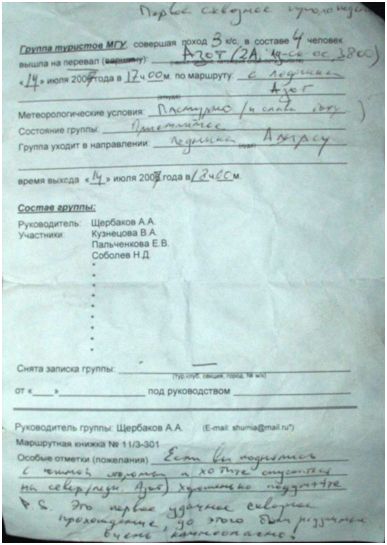 Первое сквозное прохождение
Группа туристов МГУ, совершая поход 3 к/с, в составе 4 человек
вышла на перевал (вершину): Азот (2А, 3800)
«14» июля 2007 года в 17 ч 00 м. по маршруту: с ледника
Азот
Метеорологические условия: Пасмурно (и слава богу)
Состояние группы:
Группа уходит в направлении: ледника
время выхода «14» июля 2007 года в 18 ч 00 м.
Состав группы:
Руководитель: Щербаков А.А.
Участники: Кузнецова В.А.
Пальченкова Е.В.
Соболев Н.Д.
Снята записка группы: —
(тур.клуб, секция, город, № м/к)
от «____» под руководством
Руководитель группы: Щербаков А.А. (E-mail: shumia@mail.ru")
Маршрутная книжка № 11/3-301
Особые отметки (пожелания) Если вы поднялись
с южной стороны и хотите спуститься
на север (ледн. Азот) хорошенько подумайте
P.S. Это первое удачное сквозное
прохождение, до этого были
очень камнеопасно!